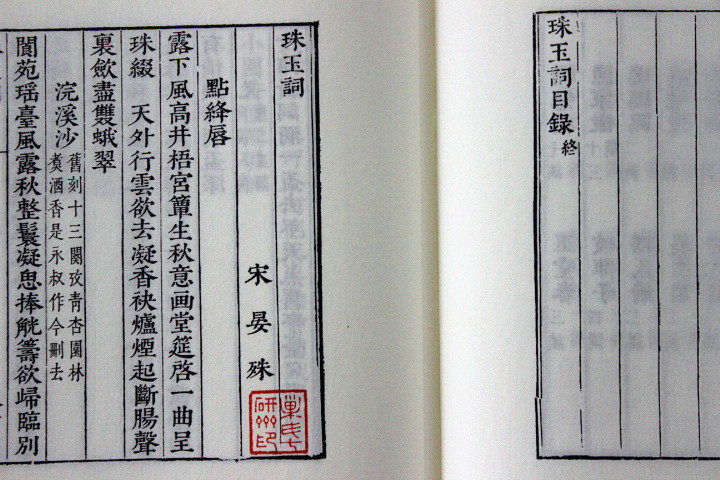 珠玉詞目錄終
珠玉詞
宋晏殊
點絳唇
露下風高井梧宮簟生秋意画堂筵啓一曲呈
珠綴 天外行雲欲去凝香袂爐煙起斷腸聲
裏斂盡雙蛾翠
浣溪沙 舊刻十三闋攷青杏園林
煑酒香是永叔作今刪去
閬苑瑶臺風露秋整鬟凝思捧觥籌欲歸臨別